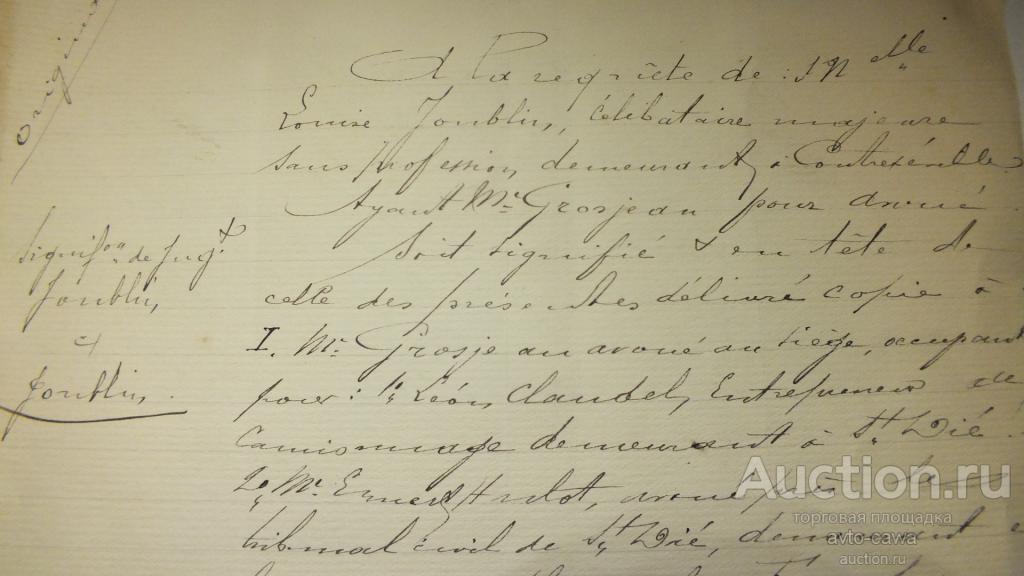 origina
A la requête de : M elle
Louise Joublin, célibataire majeure
sans profession, demeurant à Contrexéville
Ayant Me Grosjean pour avoué
Soit signifié & en tête de
celle des présentes délivré copie à
I. Me Grosjean avoué au siège, occupant
pour : 1° Léon Claudel, Entrepreneur de
Camionnage demeurant à St Dié.
2° Me Ernest Hardot, avoué près le
tribunal civil de St Dié, demeurant
Signifon de Jugt
Joublin,
c/
Joublin.
Auction.ru
торговая площадка
avto-cawa
auction.ru